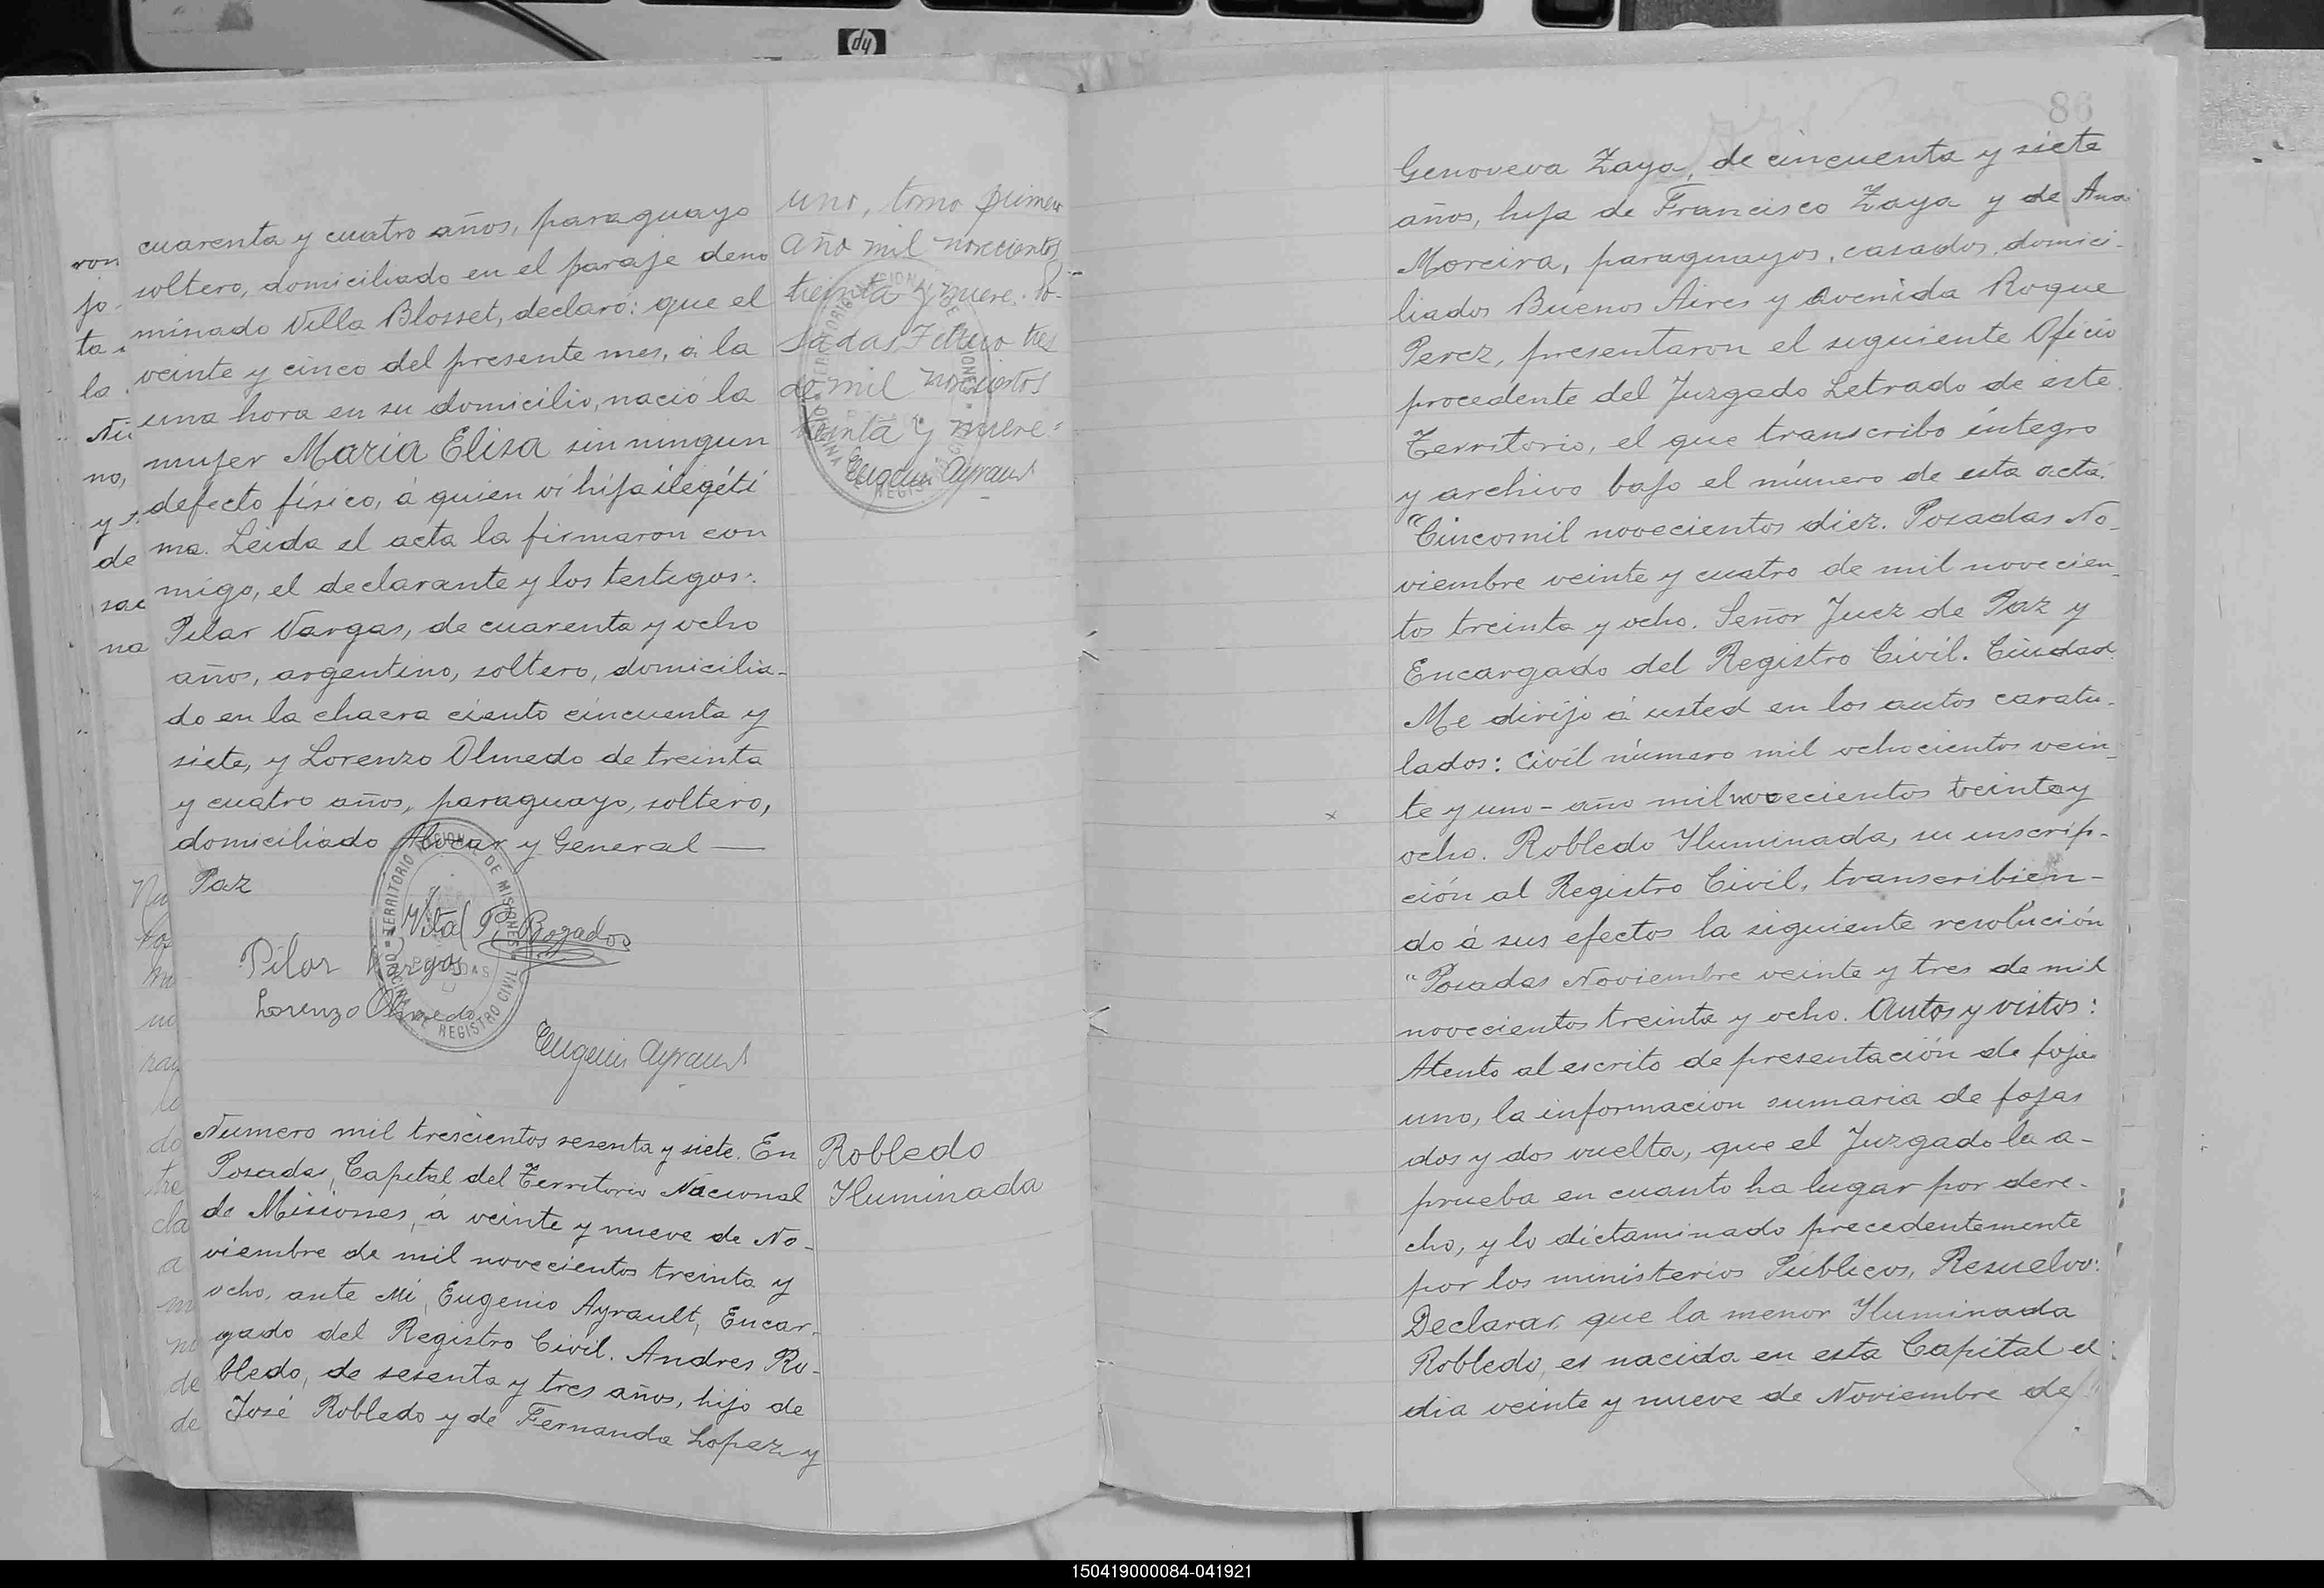 cuarenta y cuatro años, paraguayo
soltero, domiciliado en el paraje deno
minado Villa Blosset, declaró: que el
veinte y cinco del presente mes, á la
una hora en su domicilio, nació la
mujer Maria Elisa sin ningun
defecto físico, á quien ví hija ilegéti
ma. Leida el acta la firmaron con
migo, el declarante y los testigos:
Pilar Vargas, de cuarenta y ocho
años, argentino, soltero, domicilia-
do en la chacra ciento cincuenta y
siete, y Lorenzo Olmedo de treinta
y cuatro años, paraguayo, soltero,
domiciliado Alvear y General —
Paz
Vital P. Bogados
Pilar Vargas
Lorenzo Olmedo
Eugenio Ayrault
TERRITORIO NACIONAL DE MISIONES
OFICINA DE REGISTRO CIVIL
POSADAS
uno, tomo primero
año mil novecientos
treinta y nueve. Po-
sadas, Febrero tres
de mil novecientos
treinta y nueve=
Eugenio Ayrault
Numero mil trescientos sesenta y siete. En
Posadas, Capital del Territorio Nacional
de Misiones, á veinte y nueve de No-
viembre de mil novecientos treinta y
ocho, ante Mí, Eugenio Ayrault, Encar-
gado del Registro Civil. Andres Ro-
bledo, de sesenta y tres años, hijo de
José Robledo y de Fernanda Lopez y
Robledo
Iluminada
86
Genoveva Zaya, de cincuenta y siete
años, hija de Francisco Zaya y de Ana
Moreira, paraguayos, casados, domici-
liados Buenos Aires y Avenida Roque
Perez, presentaron el siguiente Oficio
procedente del Juzgado Letrado de este
Territorio, el que transcribo íntegro
y archivo bajo el número de esta acta.
"Cincomil novecientos diez. Posadas No-
viembre veinte y cuatro de mil novecien-
tos treinta y ocho. Señor Juez de Paz y
Encargado del Registro Civil. Ciudad.
Me dirijo á usted en los autos caratu-
lados: Civil número mil ochocientos vein-
te y uno - año mil novecientos treinta y
ocho. Robledo Iluminada, su inscrip-
ción al Registro Civil, transcribien-
do á sus efectos la siguiente resolución
"Posadas Noviembre veinte y tres de mil
novecientos treinta y ocho. Autos y vistos:
Atento al escrito de presentación de foja
uno, la informacion sumaria de fojas
dos y dos vuelta, que el Juzgado la a-
prueba en cuanto ha lugar por dere-
cho, y lo dictaminado precedentemente
por los ministerios Públicos, Resuelvo:
Declarar que la menor Iluminada
Robledo, es nacida en esta Capital el
dia veinte y nueve de Noviembre de
150419000084-041921